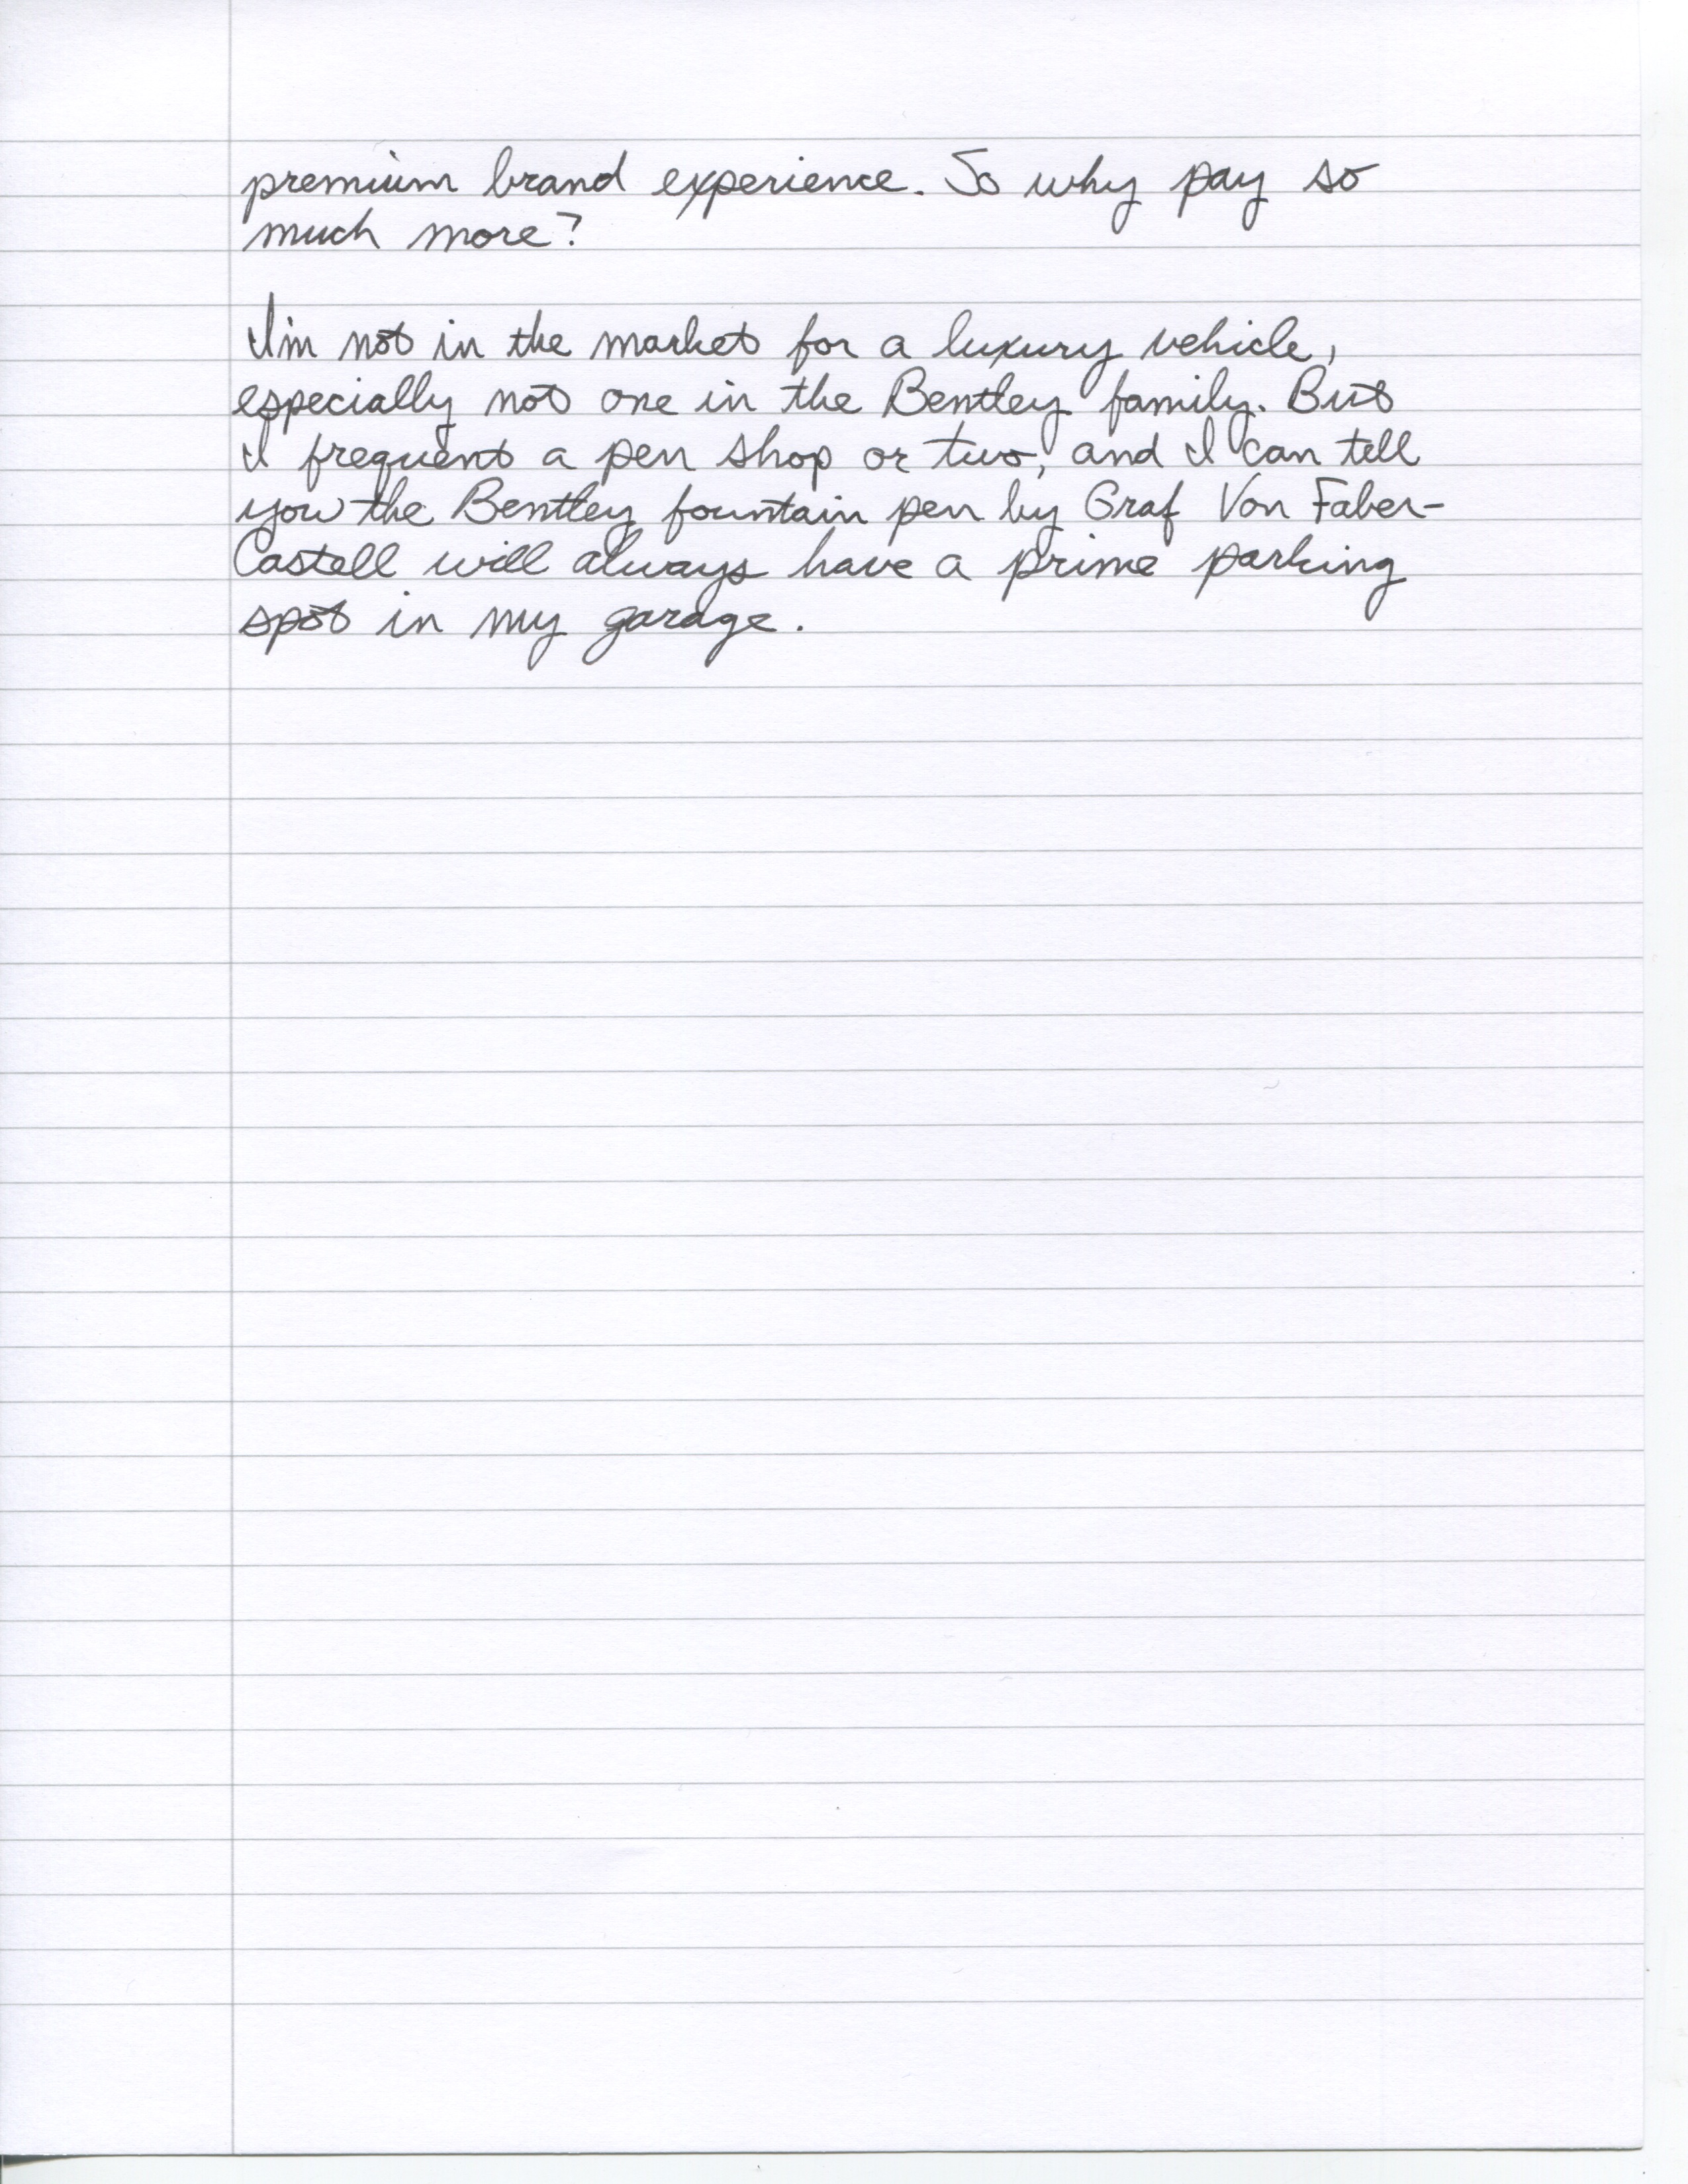 premium brand experience. So why pay so
much more?
I'm not in the market for a luxury vehicle,
especially not one in the Bentley family. But
I frequent a pen shop or two, and I can tell
you the Bentley fountain pen by Graf Von Faber-
Castell will always have a prime parking
spot in my garage.